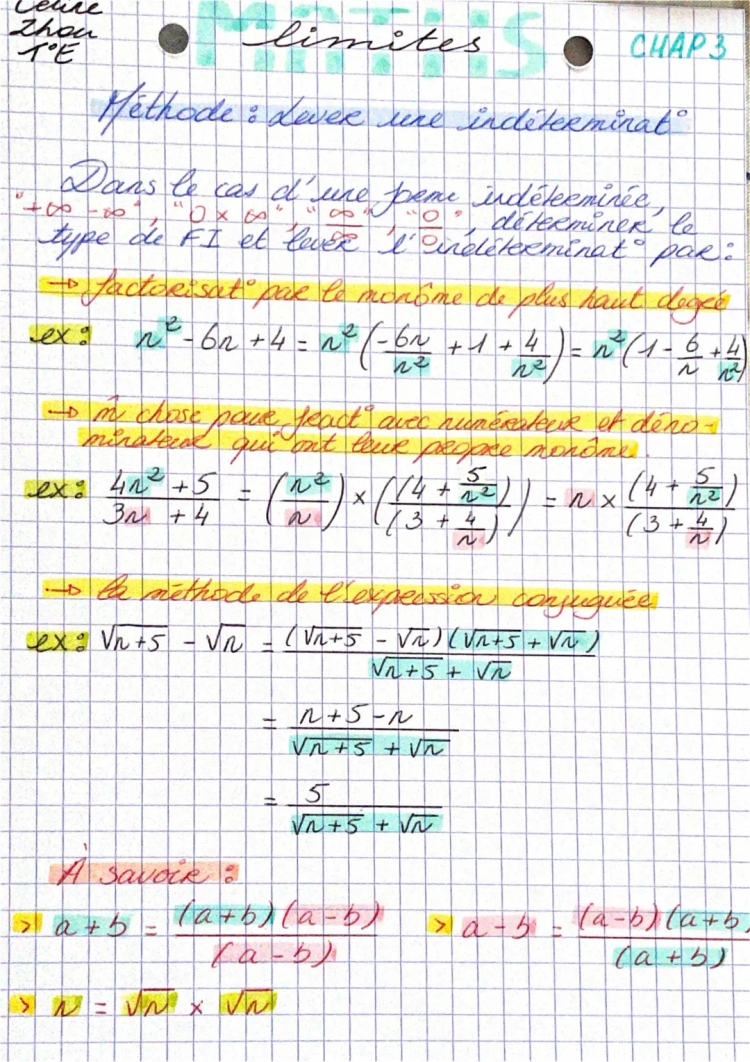 Zhou
1°E
MATHS
limites
CHAP 3
Méthode : Lever une indéterminat°
Dans le cas d'une forme indéterminée,
"+∞ -∞", "0 × ∞", "∞/∞", "0/0", déterminer le
type de FI et lever l'indéterminat° par :
→ factorisat° par le monôme de plus haut degré
ex : n² - 6n + 4 = n² (-6n/n² + 1 + 4/n²) = n² (1 - 6/n + 4/n²)
→ m̂ chose pour fract° avec numérateur et déno-
minateur qui ont leur propre monôme.
ex : (4n² + 5)/(3n + 4) = (n²/n) × ((4 + 5/n²)/(3 + 4/n)) = n × (4 + 5/n²)/(3 + 4/n)
→ la méthode de l'expression conjuguée
ex : √n+5 - √n = (√n+5 - √n)(√n+5 + √n)/(√n+5 + √n)
= (n + 5 - n)/(√n+5 + √n)
= 5/(√n+5 + √n)
À savoir :
> a + b = (a+b)(a-b)/(a-b) > a - b = (a-b)(a+b)/(a+b)
> n = √n × √n